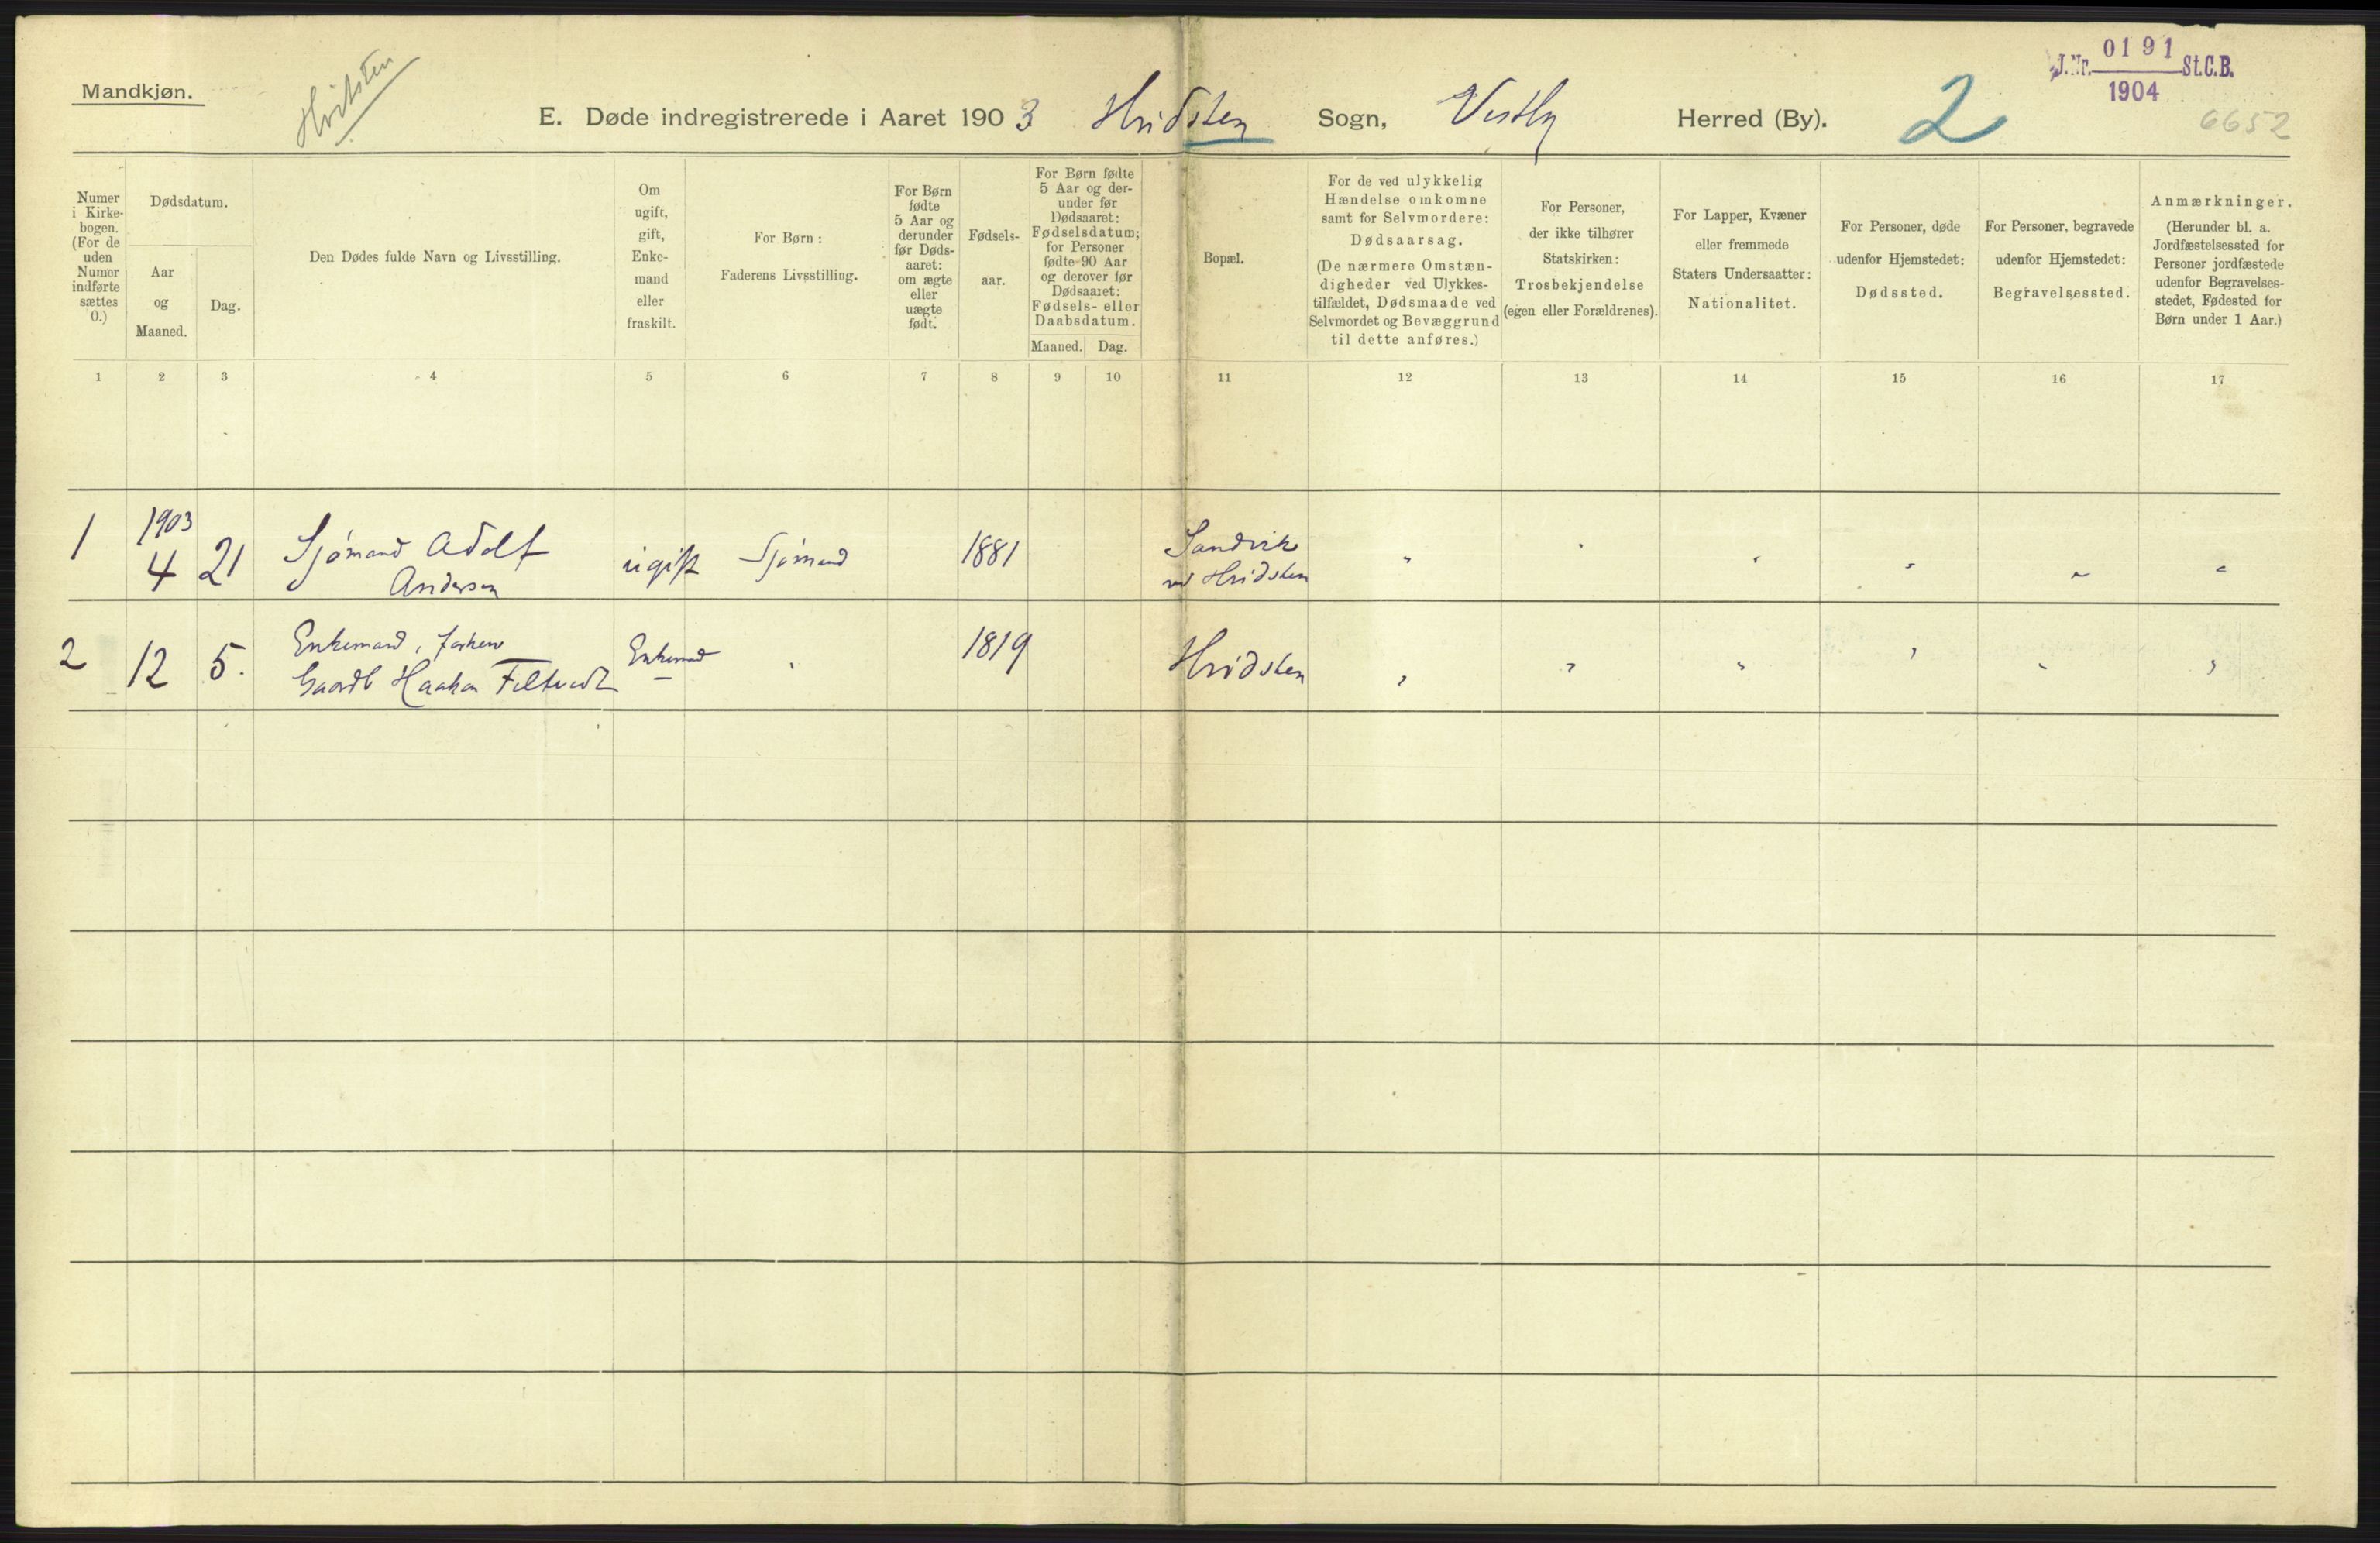 Mandkjøn.
Hvitsten
E. Døde indregistrerede i Aaret 1903 Hvidsten Sogn, Vestby Herred (By).
2
J.Nr. 0191 St.C.B.
1904
6652
Numer
i Kirke-
bogen.
(For de
uden
Numer
indførte
sættes
0.)
Dødsdatum.
Aar
og
Maaned.
Dag.
Den Dødes fulde Navn og Livsstilling.
Om
ugift,
gift,
Enke-
mand
eller
fraskilt.
For Børn:
Faderens Livsstilling.
For Børn
fødte
5 Aar og
derunder
før Døds-
aaret:
om ægte
eller
uægte
født.
Fødsels-
aar.
For Børn fødte
5 Aar og der-
under før
Dødsaaret:
Fødselsdatum;
for Personer
fødte 90 Aar
og derover før
Dødsaaret:
Fødsels- eller
Daabsdatum.
Maaned. Dag.
Bopæl.
For de ved ulykkelig
Hændelse omkomne
samt for Selvmordere:
Dødsaarsag.
(De nærmere Omstæn-
digheder ved Ulykkes-
tilfældet, Dødsmaade ved
Selvmordet og Bevæggrund
til dette anføres.)
For Personer,
der ikke tilhører
Statskirken:
Trosbekjendelse
(egen eller Forældrenes).
For Lapper, Kvæner
eller fremmede
Staters Undersaatter:
Nationalitet.
For Personer, døde
udenfor Hjemstedet:
Dødssted.
For Personer, begravede
udenfor Hjemstedet:
Begravelsessted.
Anmærkninger.
(Herunder bl. a.
Jordfæstelsessted for
Personer jordfæstede
udenfor Begravelses-
stedet, Fødested for
Børn under 1 Aar.)
1 2 3 4 5 6 7 8 9 10 11 12 13 14 15 16 17
1 1903 4 21 Sjømand Adolf
Andersen ugift Sjømand 1881 Sandvik
ved Hvidsten
2 12 5. Enkemand, forhenv
Gaardb Haakon Feltvedt Enkemd 1819 Hvidsten